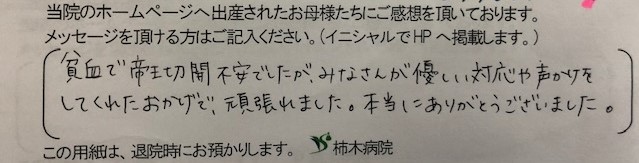 当院のホームページへ出産されたお母様たちにご感想を頂いております。
メッセージを頂ける方はご記入ください。(イニシャルでHPへ掲載します。)
貧血で帝王切開不安でしたが、みなさんが優しい対応や声かけを
してくれたおかげで、頑張れました。本当にありがとうございました。
この用紙は、退院時にお預かりします。 柿木病院